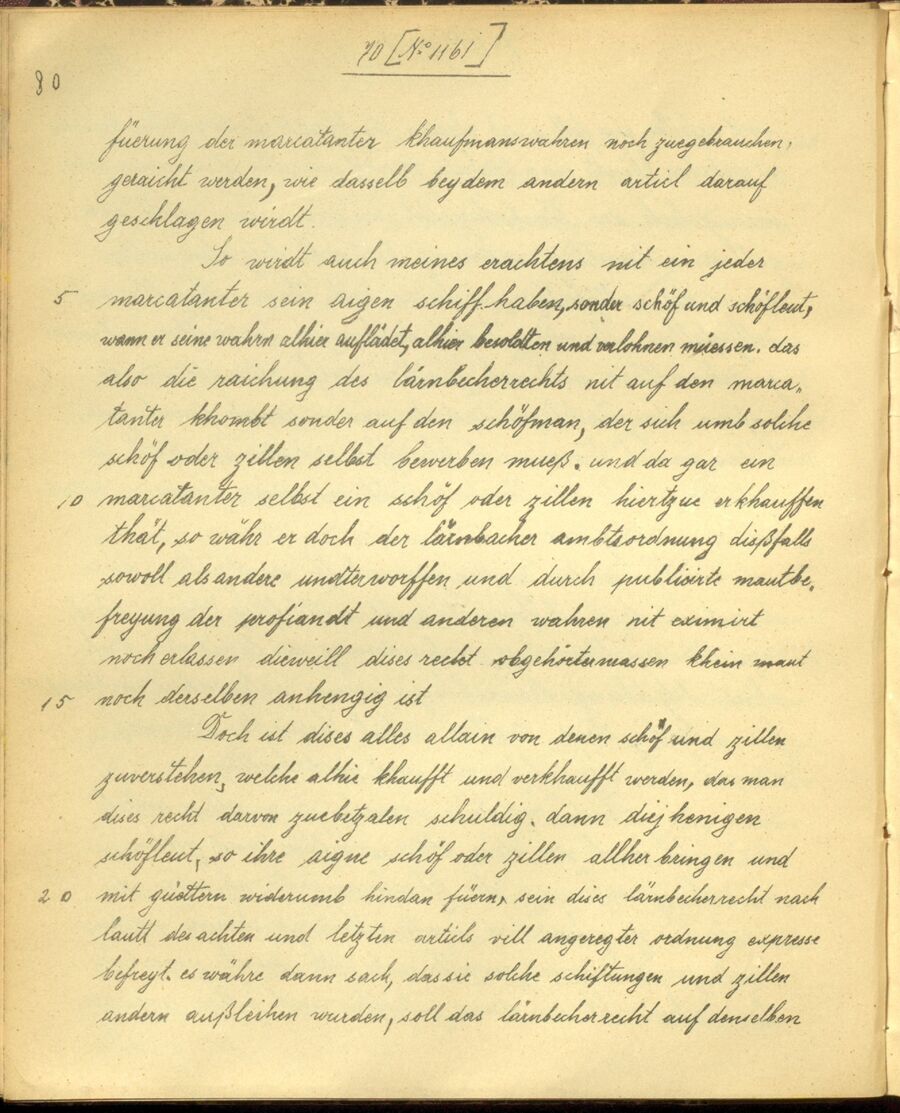 70 [No 1161]
80
füerung der marcatanter khaufmanswahren noch zuegebrauchen,
geraicht werden, wie dasselb bey dem andern articl darauf
geschlagen wirdt.
So wirdt auch meines erachtens nit ein jeder
5 marcatanter sein aigen schiff haben, sonder schöf und schöfleut,
wann er seine wahrn alhier auflädet, alhier besoldten und verlohnen müessen. das
also die raichung des lärnbecherrechts nit auf den marca„
tanter khombt sonder auf den schöfman, der sich umb solche
schöf oder zillen selbst bewerben mueß. und da gar ein
10 marcatanter selbst ein schöf oder zillen hiertzue erkhauffen
thät, so währ er doch der lärnbacher ambtsordnung dißfalls
sowoll als andere undterworffen und durch publicirte mautbe„
freyung der profiandt und anderen wahren nit eximirt
noch erlassen dieweill dises recht obgehörtermassen khein maut
15 noch derselben anhengig ist
Doch ist dises alles allain von denen schöf und zillen
zuverstehen, welche alhie khaufft und verkhaufft werden, das man
dises recht darvon zuebetzalen schuldig. dann diejhenigen
schöfleut, so ihre aigne schöf oder zillen allher bringen und
20 mit güettern widerumb hindan füern, sein dises lärnbecherrecht nach
lautt des achten und letzten articls vill angeregter ordnung expresse
befreyt. es währe dann sach, das sie solche schiftungen und zillen
andern außleihen wurden, soll das lärnbecherrecht auf denselben